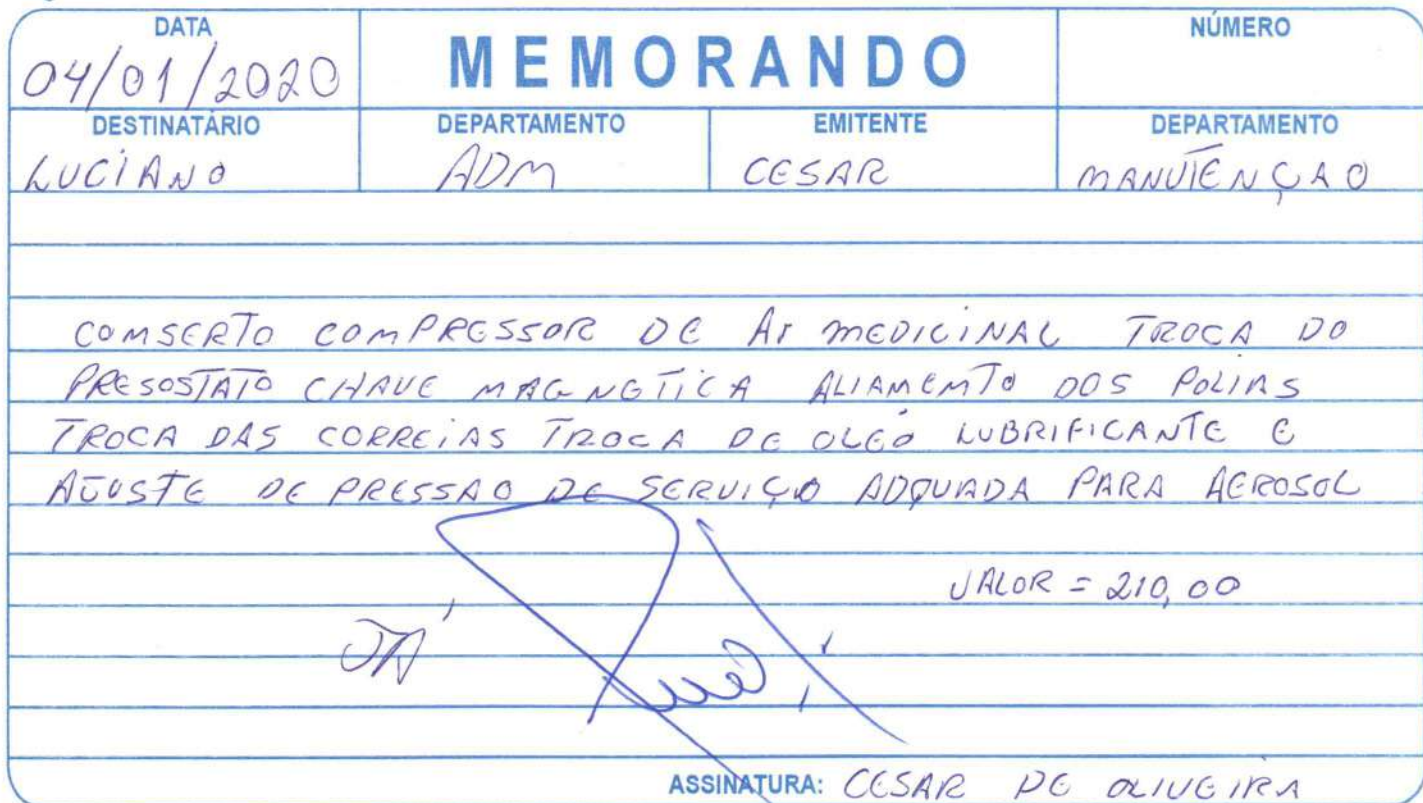 DATA
MEMORANDO
NÚMERO
04/01/2020
DESTINATÁRIO DEPARTAMENTO EMITENTE DEPARTAMENTO
LUCIANO ADM CESAR MANUTENÇAO
COMSERTO COMPRESSOR DE Ar MEDICINAL TROCA DO
PRESOSTATO CHAVE MAGNETICA ALIAMEMTO DOS POLIAS
TROCA DAS CORREIAS TROCA DE OLEO LUBRIFICANTE E
AJUSTE DE PRESSAO DE SERVIÇO ADQUADA PARA AEROSOL
VALOR = 210,00
JÁ
ASSINATURA: CESAR DE OLIVEIRA